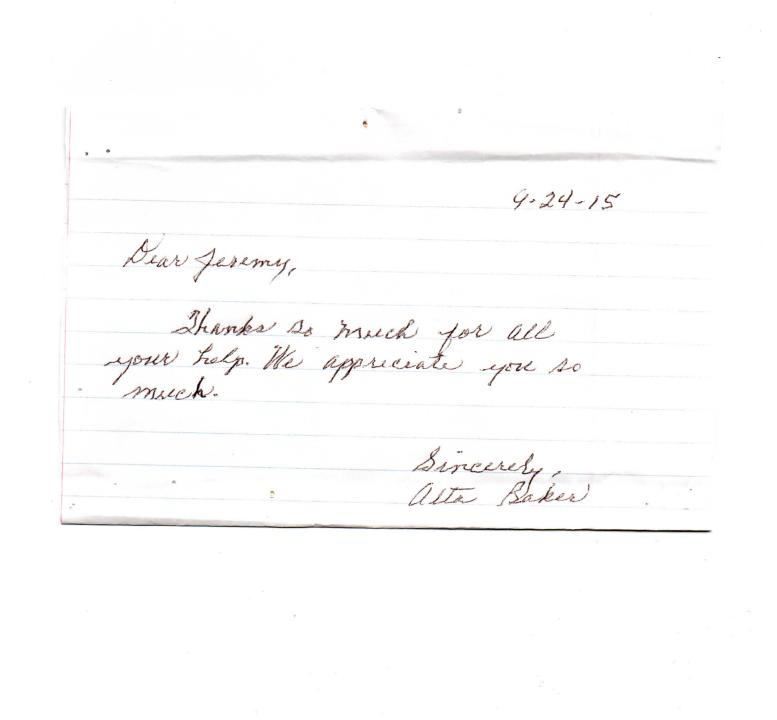 9-24-15
Dear Jeremy,
Thanks so much for all
your help. We appreciate you so
much.
Sincerely,
Alta Baker